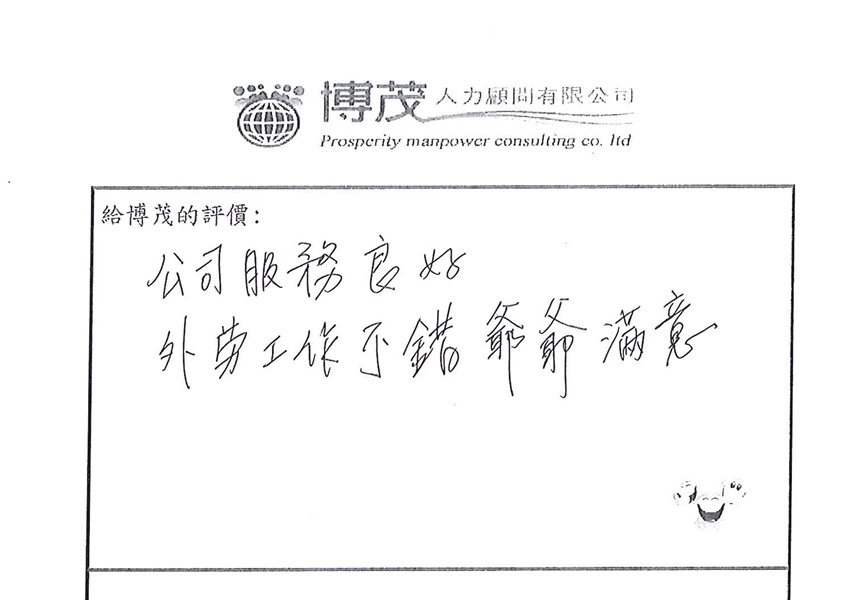 博茂人力顧問有限公司
Prosperity manpower consulting co. ltd
給博茂的評價:
公司服務良好
外劳工作不錯 爺爺滿意